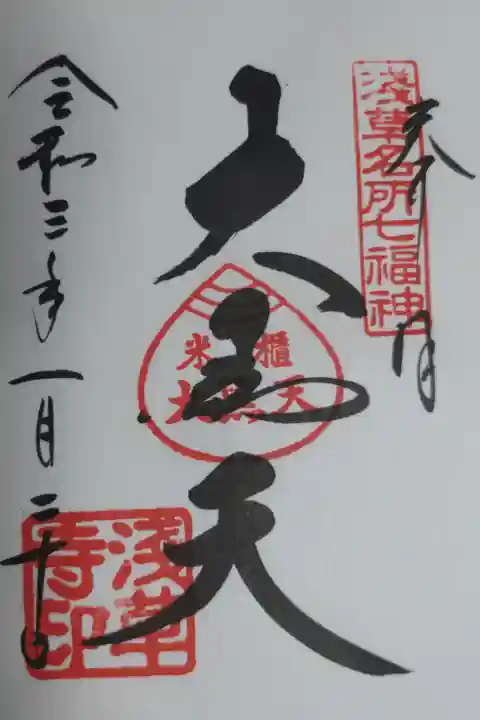 奉拝
浅草名所七福神
大黒天
米櫃
大黒天
令和三年一月二十日
浅草
寺印